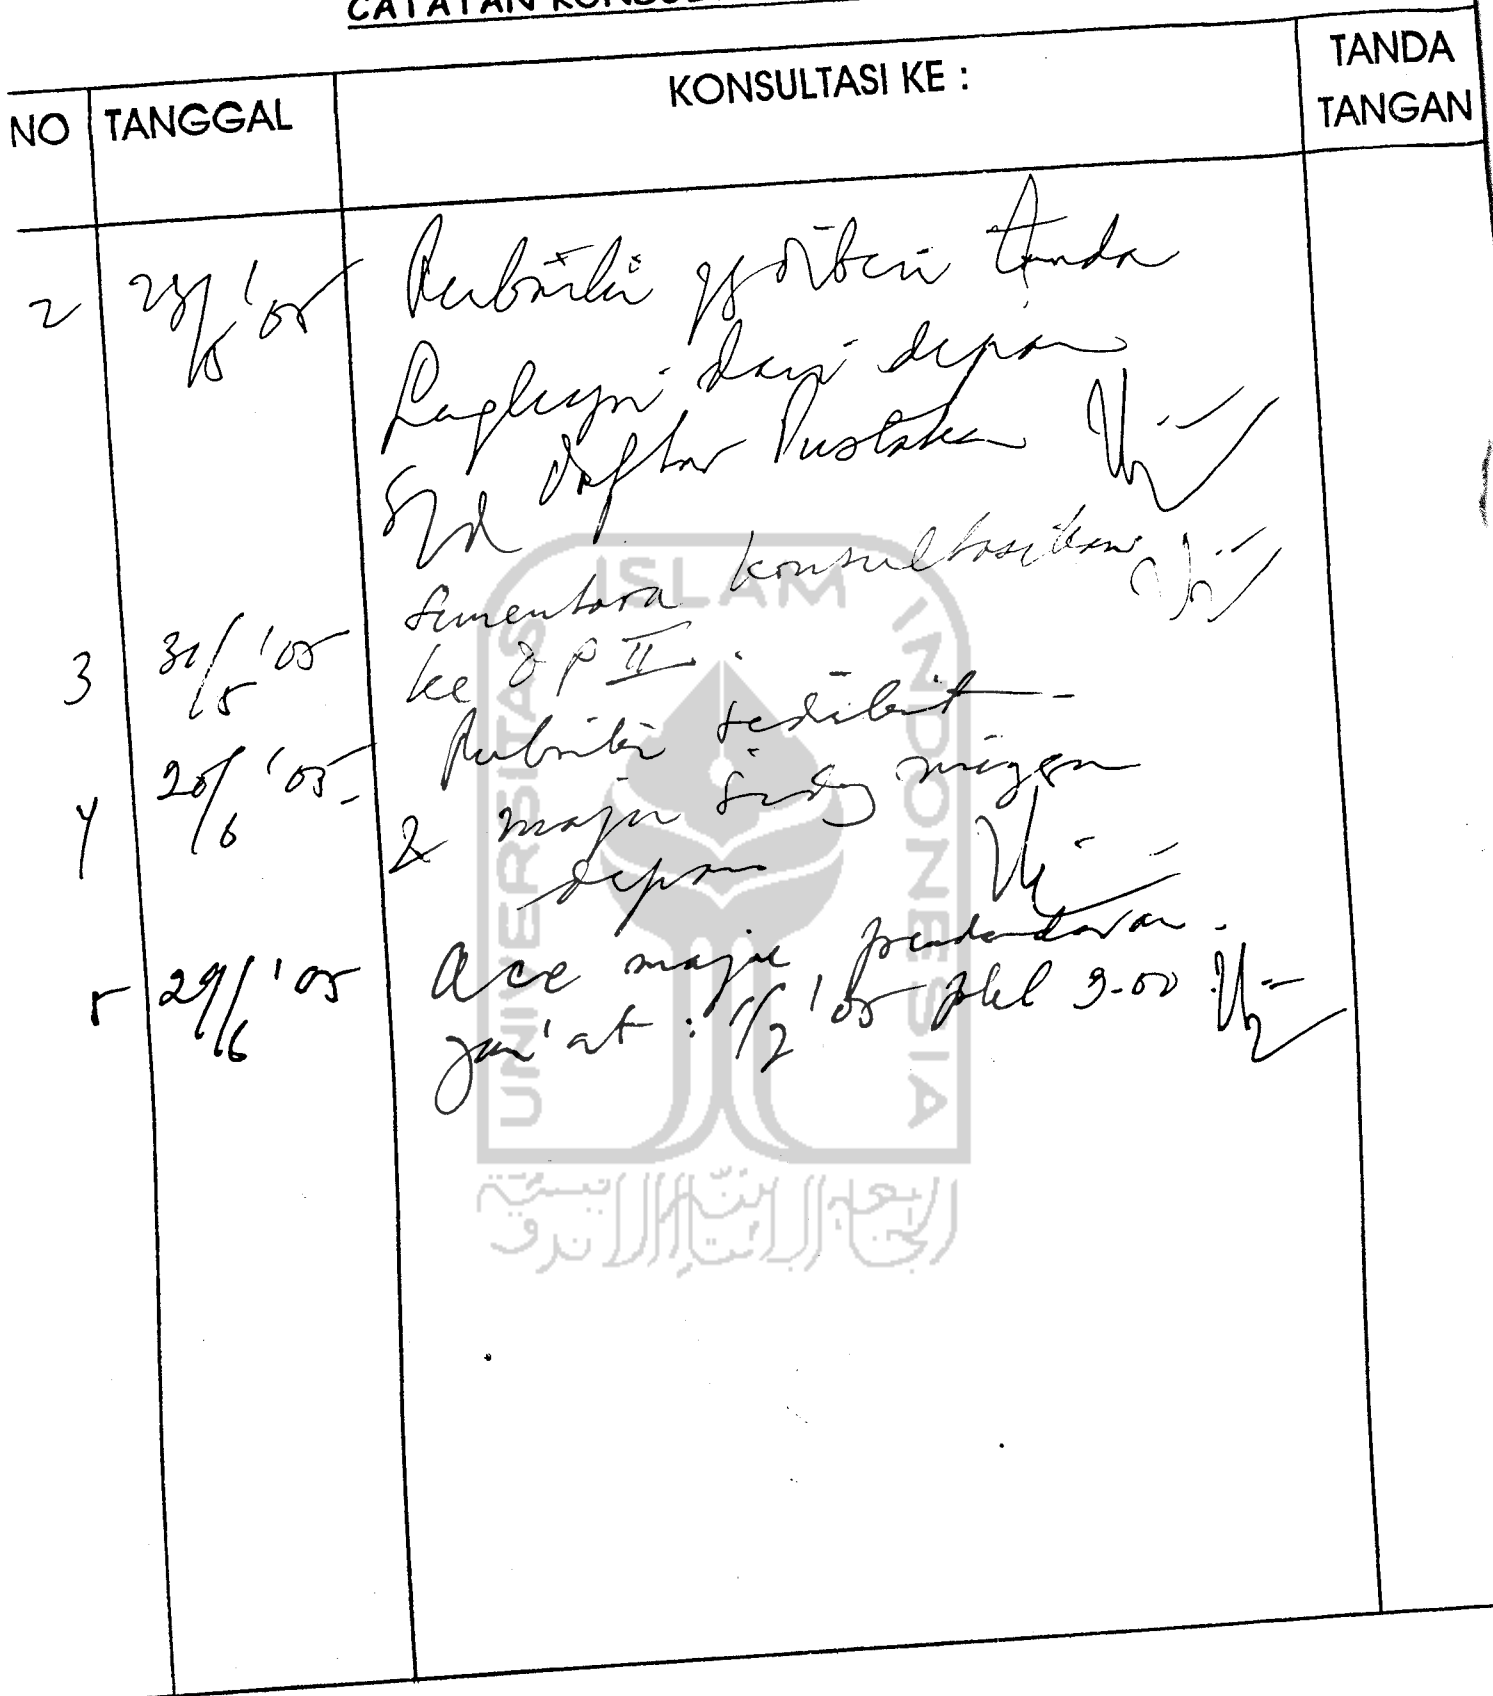 NO TANGGAL KONSULTASI KE : TANDA TANGAN
2 23/5 '05 Perbaiki yg diberi tanda
Lengkapi dari depan
s/d daftar Pustaka
3 31/5 '05 Sementara konsultasikan
ke DP II.
4 20/6 '05 Perbaiki sedikit
& maju sidang minggu
depan
5 29/6 '05 Acc maju pendadaran.
Jum'at : 1/7 '05 pkl 9.00
UNIVERSITAS ISLAM INDONESIA